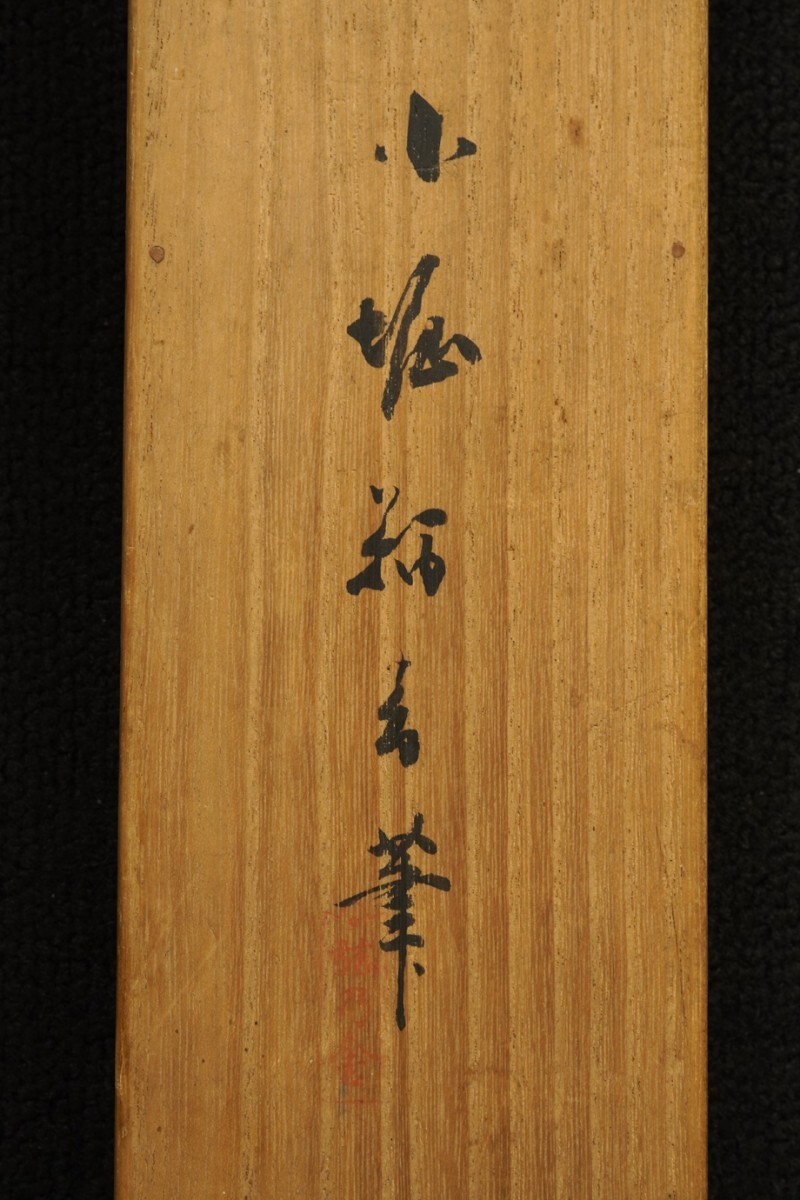 小堀鞆音筆